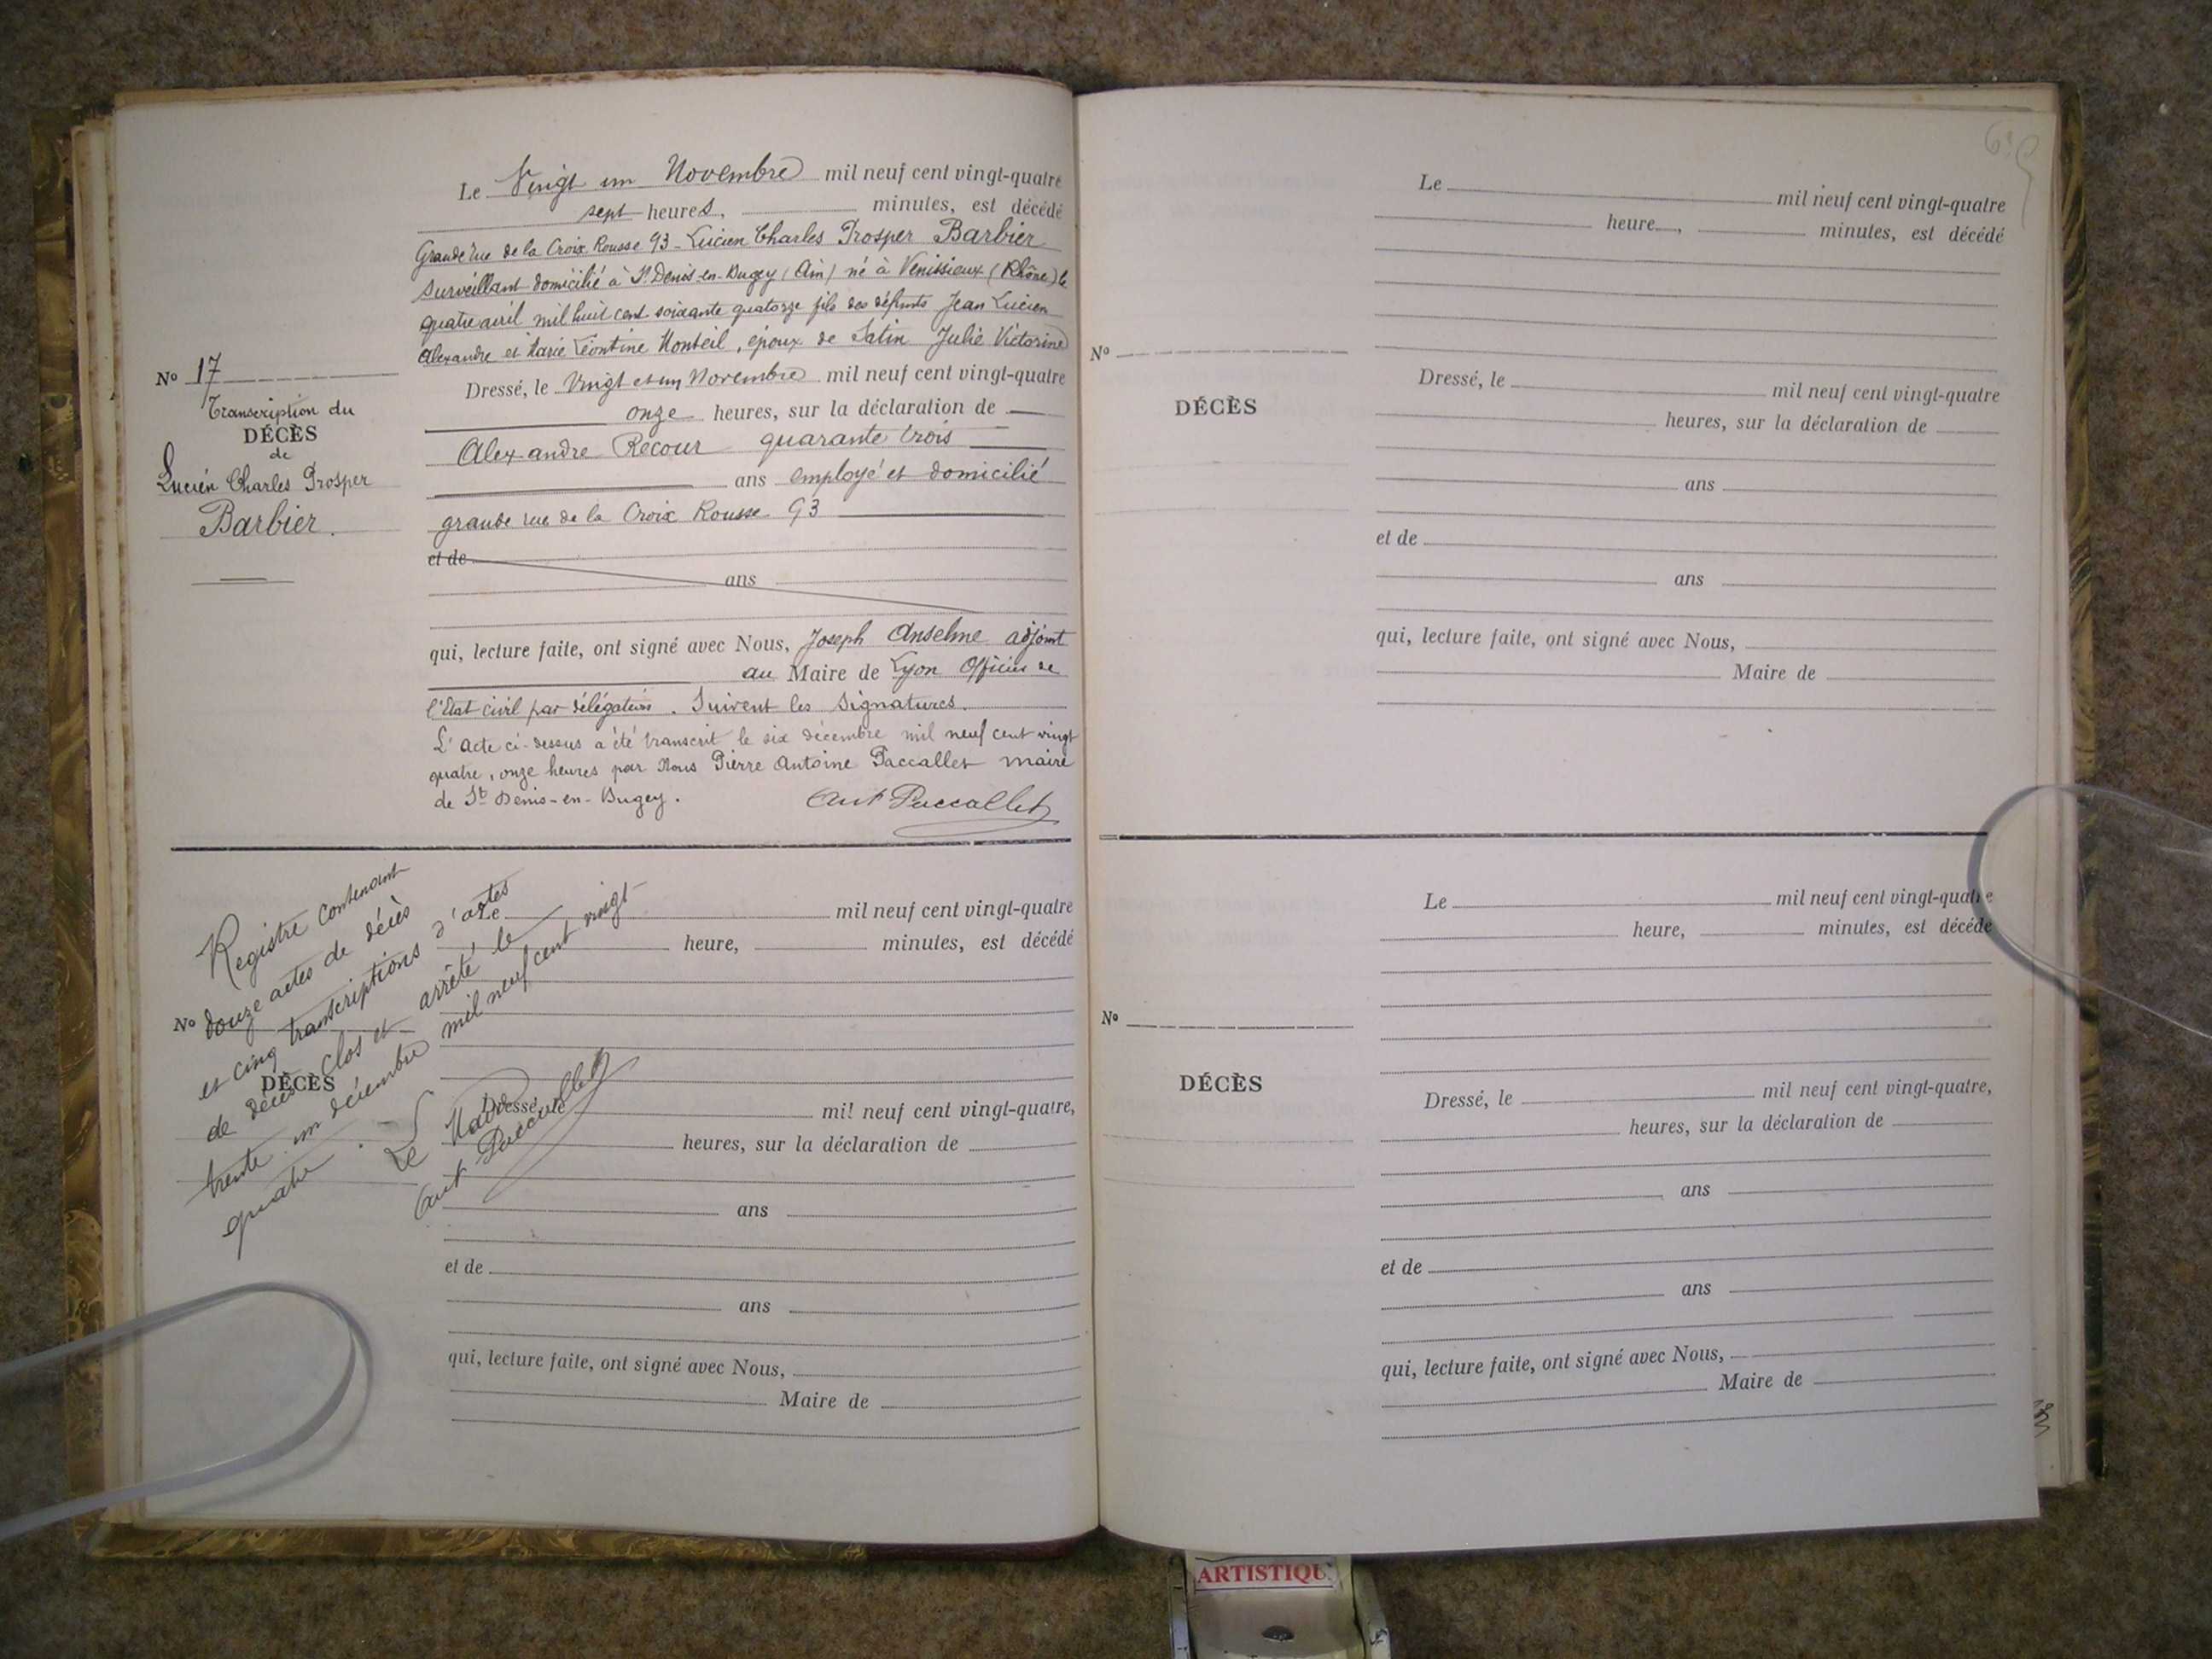 Nº 17
Transcription du
DÉCÈS
de
Lucien Charles Prosper
Barbier.
Le Vingt un Novembre mil neuf cent vingt-quatre
sept heures, minutes, est décédé
Grande rue de la Croix Rousse 93 - Lucien Charles Prosper Barbier
surveillant domicilié à St Denis-en-Bugey (Ain) né à Venissieux (Rhône) le
quatre avril mil huit cent soixante quatorze fils des défunts Jean Lucien
Alexandre et Marie Léontine Monteil, époux de Satin Julie Victorine
Dressé, le Vingt et un Novembre mil neuf cent vingt-quatre
onze heures, sur la déclaration de
Alexandre Recour quarante trois
ans employé et domicilié
grande rue de la Croix Rousse 93
et de
ans
qui, lecture faite, ont signé avec Nous, Joseph Anselme adjoint
au Maire de Lyon Officier de
l'Etat civil par délégation. Suivent les signatures.
L'acte ci-dessus a été transcrit le six décembre mil neuf cent vingt
quatre, onze heures par Nous Pierre Antoine Paccallet maire
de St Denis-en-Bugey. Ant Paccallet
Registre contenant
douze actes de décès
et cinq transcriptions d'actes
de décès clos et arrêté le
trente un décembre mil neuf cent vingt
quatre.
Le Maire
Ant Paccallet
Le mil neuf cent vingt-quatre
heure, minutes, est décédé
Nº
DÉCÈS
Dressé, le mil neuf cent vingt-quatre,
heures, sur la déclaration de
ans
et de
ans
qui, lecture faite, ont signé avec Nous,
Maire de
Le mil neuf cent vingt-quatre
heure, minutes, est décédé
Nº
DÉCÈS
Dressé, le mil neuf cent vingt-quatre
heures, sur la déclaration de
ans
et de
ans
qui, lecture faite, ont signé avec Nous,
Maire de
Le mil neuf cent vingt-quatre
heure, minutes, est décédé
Nº
DÉCÈS
Dressé, le mil neuf cent vingt-quatre,
heures, sur la déclaration de
ans
et de
ans
qui, lecture faite, ont signé avec Nous,
Maire de
ARTISTIQU